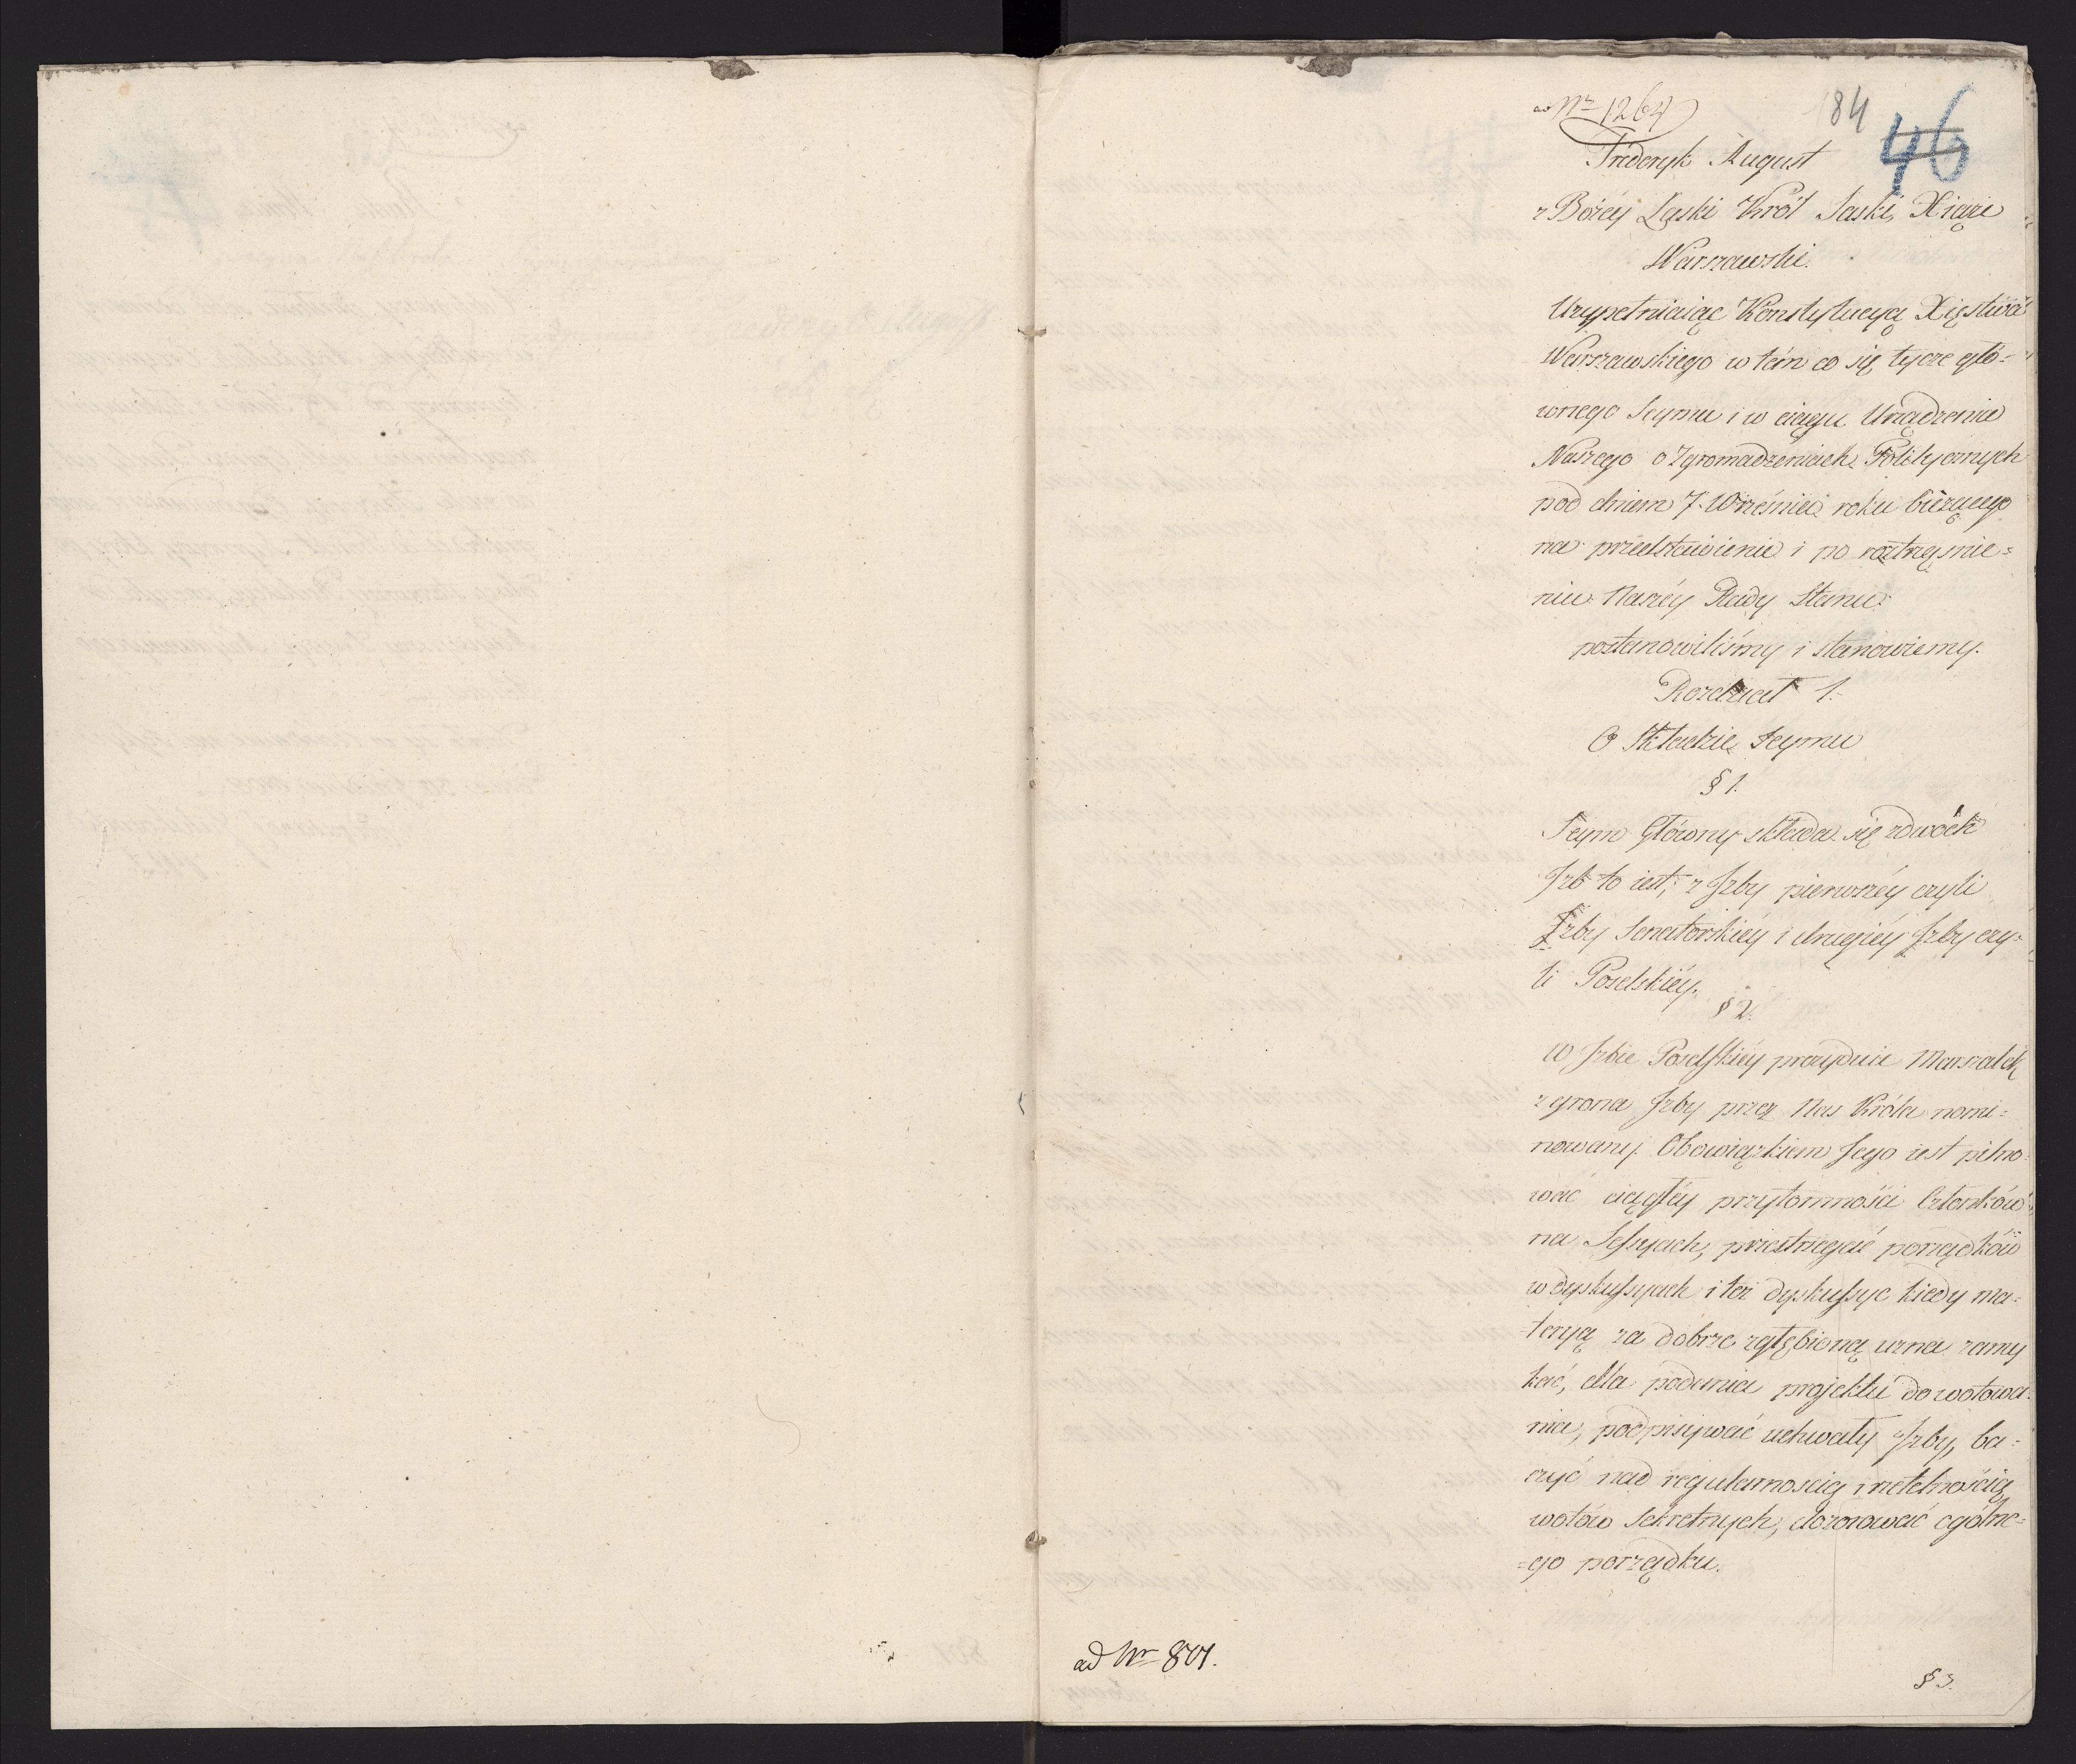 ad Nr 1264
184
46
Friderÿk August
z Bożéy Łaski Król Saski, Xiąże
Warszawski.
Uzupełniaiąc Konstytucyą Xięstwa
Warszawskiego w tém co się tycze głó=
wnego Seymu i w ciągu Urządzenia
Naszego o Zgromadzeniach Politycznych
pod dniem 7. Września roku bieżącego
na przedstawienie i po roztrząśnie=
niu Naszéy Rady Stanu:
postanowiliśmy i stanowiemy.
Rozdział 1.
O Składzie Seymu
§ 1.
Seym Główny składa się z dwóch
Izb to iest, z Izby pierwszéy czyli
Izby Senatorskiéy i drugiéy Izby czy=
li Poselskiéy.
§ 2.
W Izbie Poselskiéy prezyduie Marszałek
z grona Izby przez Nas Króla nomi=
nowany. Obowiązkiem Jego iest pilno=
wać ciągłéy przytomności Członków
na Sessyach, przestrzegać porządków
w dyskussyach i też dyskussye kiedy ma=
teryą za dobrze zgłębioną uzna zamy
kać, dla podania projektu do wotowa=
nia, podpisywać uchwały Izby, ba=
czyć nad regularnoscią i rzetelnością
wotów sekretnych, dozorować ogólne=
=go porządku.
ad Nr 801.
§ 3.